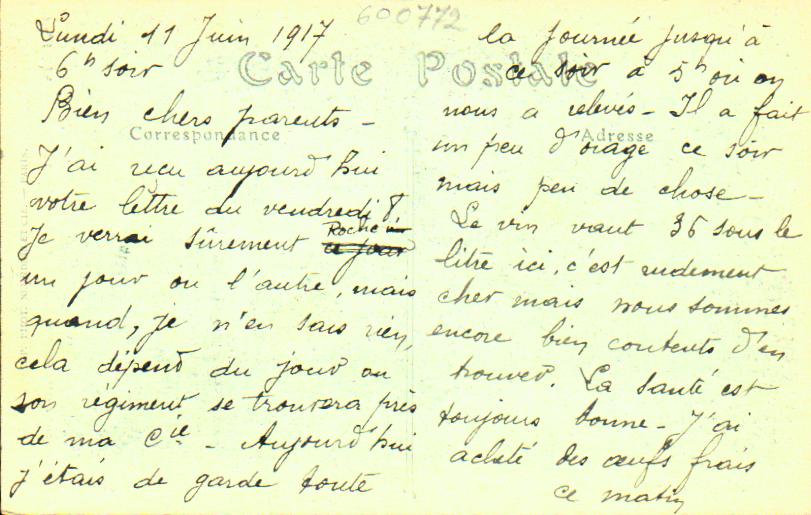 600772
Carte Postale
Correspondance
Adresse
Lundi 11 Juin 1917
6h soir
Bien chers parents -
J'ai reçu aujourd'hui
votre lettre du vendredi 8
Je verrai sûrement Roche
un jour ou l'autre, mais
quand, je n'en sais rien,
cela dépend du jour ou
son régiment se trouvera près
de ma Cie - Aujourd'hui
j'étais de garde toute
la journée jusqu'à
ce soir à 5h où on
nous a relevés - Il a fait
un peu d'orage ce soir
mais peu de chose -
Le vin vaut 36 sous le
litre ici, c'est rudement
cher mais nous sommes
encore bien contents d'en
trouver. La santé est
toujours bonne - J'ai
acheté des œufs frais
ce matin